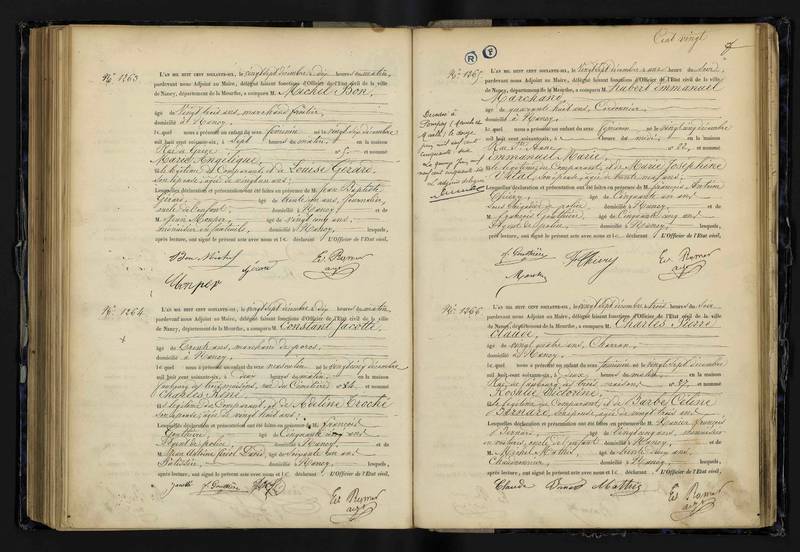 Nº 1263
L'AN MIL HUIT CENT SOIXANTE-SIX, le vingt sept décembre, à dix heures du matin,
pardevant nous Adjoint au Maire, délégué faisant fonctions d'Officier de l'Etat civil de la ville
de Nancy, département de la Meurthe, a comparu M. Michel Bon,
âgé de vingt trois ans, marchand fruitier
domicilié à Nancy
lequel nous a présenté un enfant du sexe féminin né le vingt six décembre
mil huit cent soixante-six, à sept heures du matin, en la maison
Rue S. et nommé
Marie Angélique,
fille légitime du Comparant et de Louise Gérard,
son épouse, âgée de vingt un ans;
Lesquelles déclaration et présentation ont été faites en présence de M. Jean Baptiste
Gérard, âgé de trente un ans, journalier,
oncle de l'enfant domicilié à Nancy et de
M. Jean âgé de vingt cinq ans,
domicilié à Nancy lesquels,
après lecture, ont signé le présent acte avec nous et le déclarant / L'Officier de l'Etat civil,
Bon Michel Gérard Ev Ramer
adj
Nº 1264
L'AN MIL HUIT CENT SOIXANTE-SIX, le vingt sept décembre, à dix heures du matin,
pardevant nous Adjoint au Maire, délégué faisant fonctions d'Officier de l'Etat civil de la ville
de Nancy, département de la Meurthe, a comparu M. Constant Jacotté,
âgé de trente ans, marchand de porcs,
domicilié à Nancy
lequel nous a présenté un enfant du sexe masculin né le vingt cinq décembre
mil huit cent soixante-six, à deux heures du matin, en la maison
faubourg des trois maisons, rue du Cimetière nº 24 et nommé
Charles René,
fils légitime du Comparant, et de Adeline Troché
son épouse, âgée de vingt huit ans;
Lesquelles déclaration et présentation ont été faites en présence de M. François
Gouthière, âgé de cinquante cinq ans
Agent de police domicilié à Nancy et de
M. David âgé de soixante un ans
domicilié à Nancy lesquels,
après lecture, ont signé le présent acte avec nous et le déclarant / L'Officier de l'Etat civil,
Jacotté f. Gouthière Ev Ramer
adj
Cent vingt
R F
Nº 1265
L'AN MIL HUIT CENT SOIXANTE-SIX, le vingt sept décembre à une heure du soir,
pardevant nous Adjoint au Maire, délégué faisant fonctions d'Officier de l'Etat civil de la ville
de Nancy, département de la Meurthe, a comparu M. Hubert Emmanuel
Marchand,
âgé de quarante huit ans, Cordonnier
domicilié à Nancy
lequel nous a présenté un enfant du sexe féminin né le vingt cinq décembre
mil huit cent soixante-six, à midi, en la maison
Rue Ste Anne nº 22 et nommé
Emmanuel Marie,
fille légitime du Comparant, et de Marie Joséphine
Vidal, son épouse, âgée de trente neuf ans;
Lesquelles déclaration et présentation ont été faites en présence de M. François Antoine
Thiery, âgé de cinquante un ans
sous brigadier de police domicilié à Nancy et de
M. François Gouthière, âgé de cinquante cinq ans
Agent de police, domicilié à Nancy lesquels,
après lecture, ont signé le présent acte avec nous et le déclarant / L'Officier de l'Etat civil,
f. Gouthière Thiery Ev Ramer
adj
Nº 1266
L'AN MIL HUIT CENT SOIXANTE-SIX, le vingt sept décembre à trois heures du soir
pardevant nous Adjoint au Maire, délégué faisant fonctions d'Officier de l'Etat civil de la ville
de Nancy, département de la Meurthe, a comparu M. Charles Pierre
Claude,
âgé de vingt quatre ans, Charron
domicilié à Nancy
lequel nous a présenté un enfant du sexe féminin né le vingt sept décembre
mil huit cent soixante-six, à deux heures du matin en la maison
Rue du faubourg des trois maisons nº 37 et nommé
Rosalie Victorine,
fille légitime du Comparant, et de Barbe Céline
Bernard, son épouse, âgée de vingt huit ans
Lesquelles déclaration et présentation ont été faites en présence de M. François
Bernard, âgé de cinquante ans,
oncle de l'enfant domicilié à Nancy, et de
M. Michel Mathis, âgé de trente cinq ans,
domicilié à Nancy, lesquels,
après lecture, ont signé le présent acte avec nous et le déclarant / L'Officier de l'Etat civil,
Claude Mathis Ev Ramer
adj